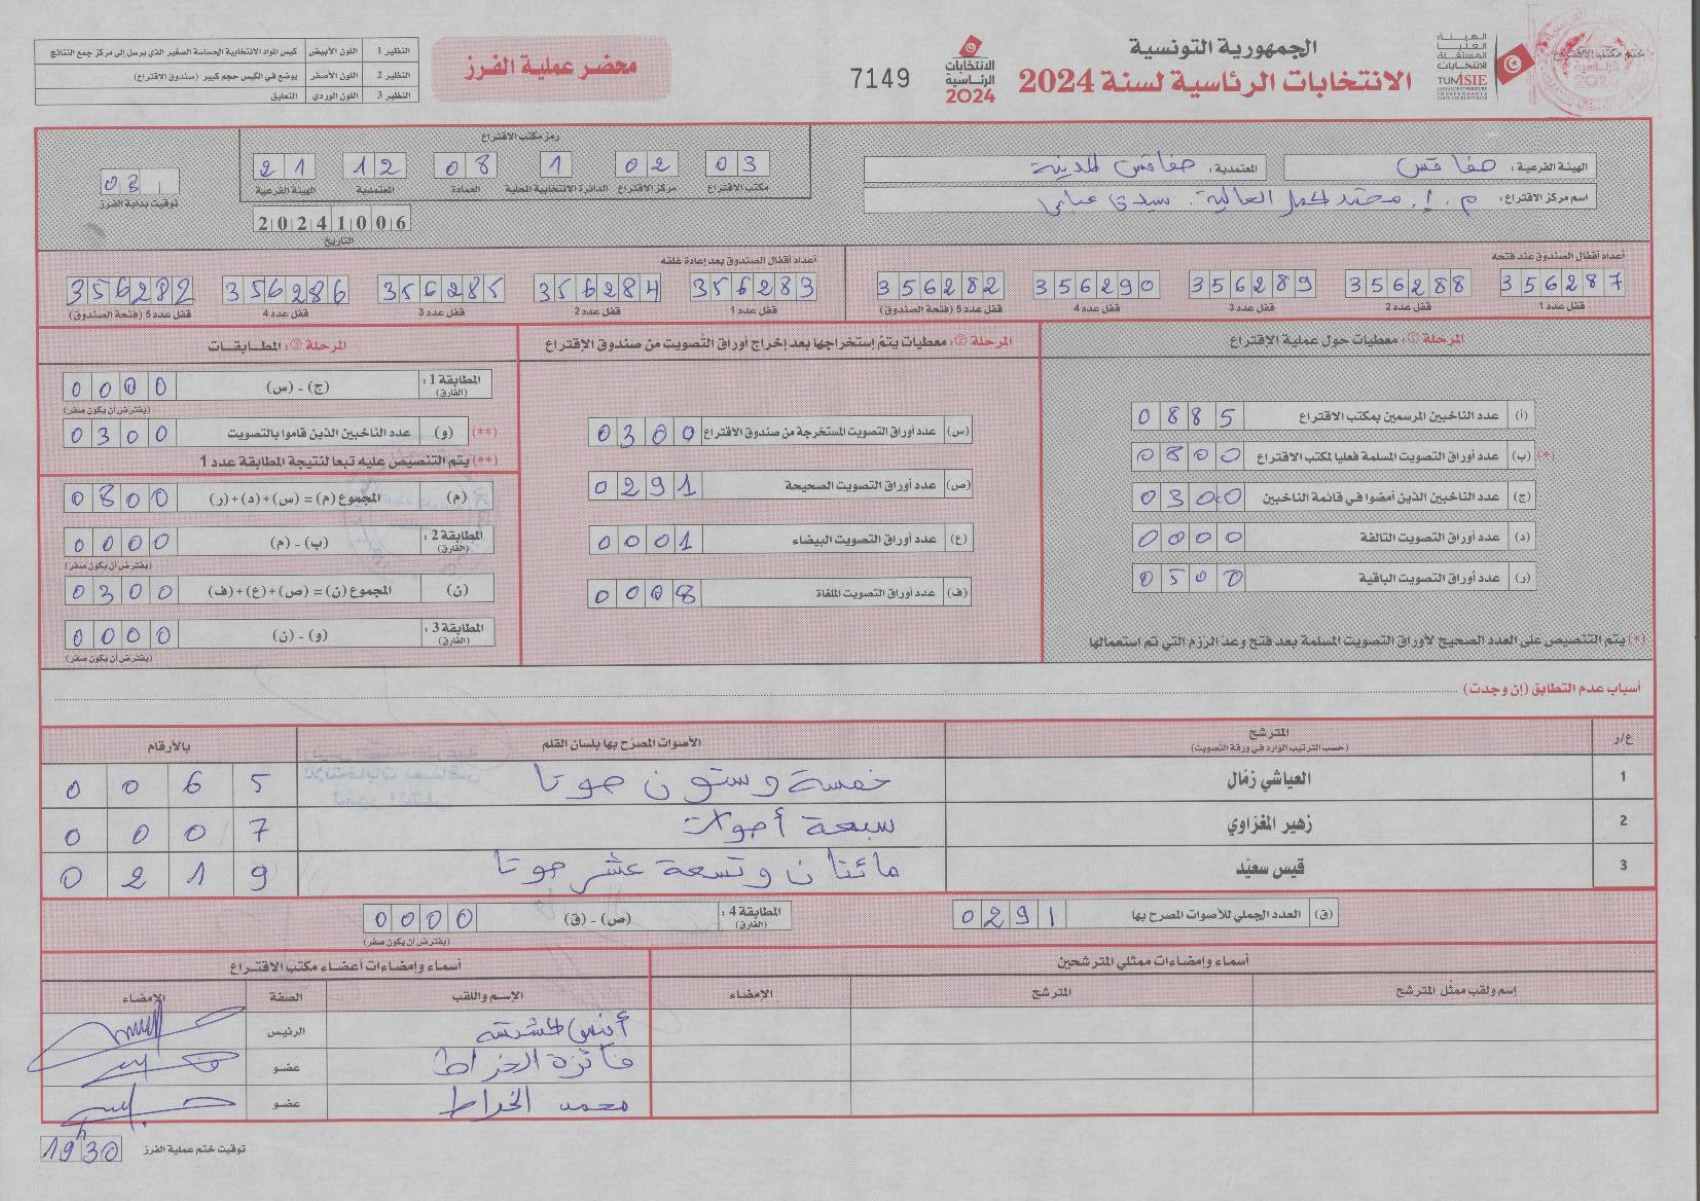 الجمهورية التونسية
الانتخابات الرئاسية لسنة 2024
الهيئة العليا المستقلة للانتخابات
TUNISIE
ختم مكتب الاقتراع
الانتخابات الرئاسية 2024
7149
محضر عملية الفرز
النظير 1 اللون الأبيض كيس المواد الانتخابية الحساسة الصغير الذي يرسل إلى مركز جمع النتائج
النظير 2 اللون الأصفر يوضع في الكيس حجم كبير (صندوق الاقتراع)
النظير 3 اللون الوردي التعليق
الهيئة الفرعية: صفاقس المعتمدية: صفاقس المدينة
اسم مركز الاقتراع: م. إ. محمد العالية. سيدي عباس
رمز مكتب الاقتراع
03 02 1 08 12 21
مكتب الاقتراع مركز الاقتراع الدائرة الانتخابية المحلية العمادة المعتمدية الهيئة الفرعية
20241006
التاريخ
03
توقيت بداية الفرز
أعداد أقفال الصندوق عند فتحه
356287 356288 356289 356290 356282
قفل عدد 1 قفل عدد 2 قفل عدد 3 قفل عدد 4 قفل عدد 5 (فتحة الصندوق)
أعداد أقفال الصندوق بعد إعادة غلقه
356283 356284 356285 356286 356282
قفل عدد 1 قفل عدد 2 قفل عدد 3 قفل عدد 4 قفل عدد 5 (فتحة الصندوق)
المرحلة ①: معطيات حول عملية الاقتراع
(أ) عدد الناخبين المرسمين بمكتب الاقتراع 0885
(*) (ب) عدد أوراق التصويت المسلمة فعليا لمكتب الاقتراع 0800
(ج) عدد الناخبين الذين أمضوا في قائمة الناخبين 0300
(د) عدد أوراق التصويت التالفة 0000
(ر) عدد أوراق التصويت الباقية 0500
(*) يتم التنصيص على العدد الصحيح لأوراق التصويت المسلمة بعد فتح وعد الرزم التي تم استعمالها
المرحلة ②: معطيات يتم إستخراجها بعد إخراج أوراق التصويت من صندوق الإقتراع
(س) عدد أوراق التصويت المستخرجة من صندوق الاقتراع 0300
(ص) عدد أوراق التصويت الصحيحة 0291
(ع) عدد أوراق التصويت البيضاء 0001
(ف) عدد أوراق التصويت الملغاة 0008
المرحلة ③: المطـابقـات
المطابقة 1: (الفارق) (ج) - (س) 0000
(يفترض أن يكون صفر)
(**) (و) عدد الناخبين الذين قاموا بالتصويت 0300
(**) يتم التنصيص عليه تبعا لنتيجة المطابقة عدد 1
(م) المجموع (م) = (س)+(د)+(ر) 0800
المطابقة 2: (الفارق) (ب) - (م) 0000
(يفترض أن يكون صفر)
(ن) المجموع (ن) = (ص)+(ع)+(ف) 0300
المطابقة 3: (الفارق) (و) - (ن) 0000
(يفترض أن يكون صفر)
أسباب عدم التطابق (إن وجدت)
ع/ر المترشح الأصوات المصرّح بها بلسان القلم بالأرقام
(حسب الترتيب الوارد في ورقة التصويت)
1 العياشي زمّال خمسة وستون صوتا 0065
2 زهير المغزاوي سبعة أصوات 0007
3 قيس سعيّد مائتان وتسعة عشر صوتا 0219
(ق) العدد الجملي للأصوات المصرح بها 0291
المطابقة 4: (الفارق) (ص) - (ق) 0000
(يفترض أن يكون صفر)
أسماء وإمضاءات ممثلي المترشحين
إسم ولقب ممثّل المترشح المترشح الإمضاء
أسماء وإمضاءات أعضاء مكتب الاقتراع
الإسم واللقب الصفة الإمضاء
أنيس الرئيس
فائزة الخراط عضو
محمد الخراط عضو
توقيت ختم عملية الفرز 19h30